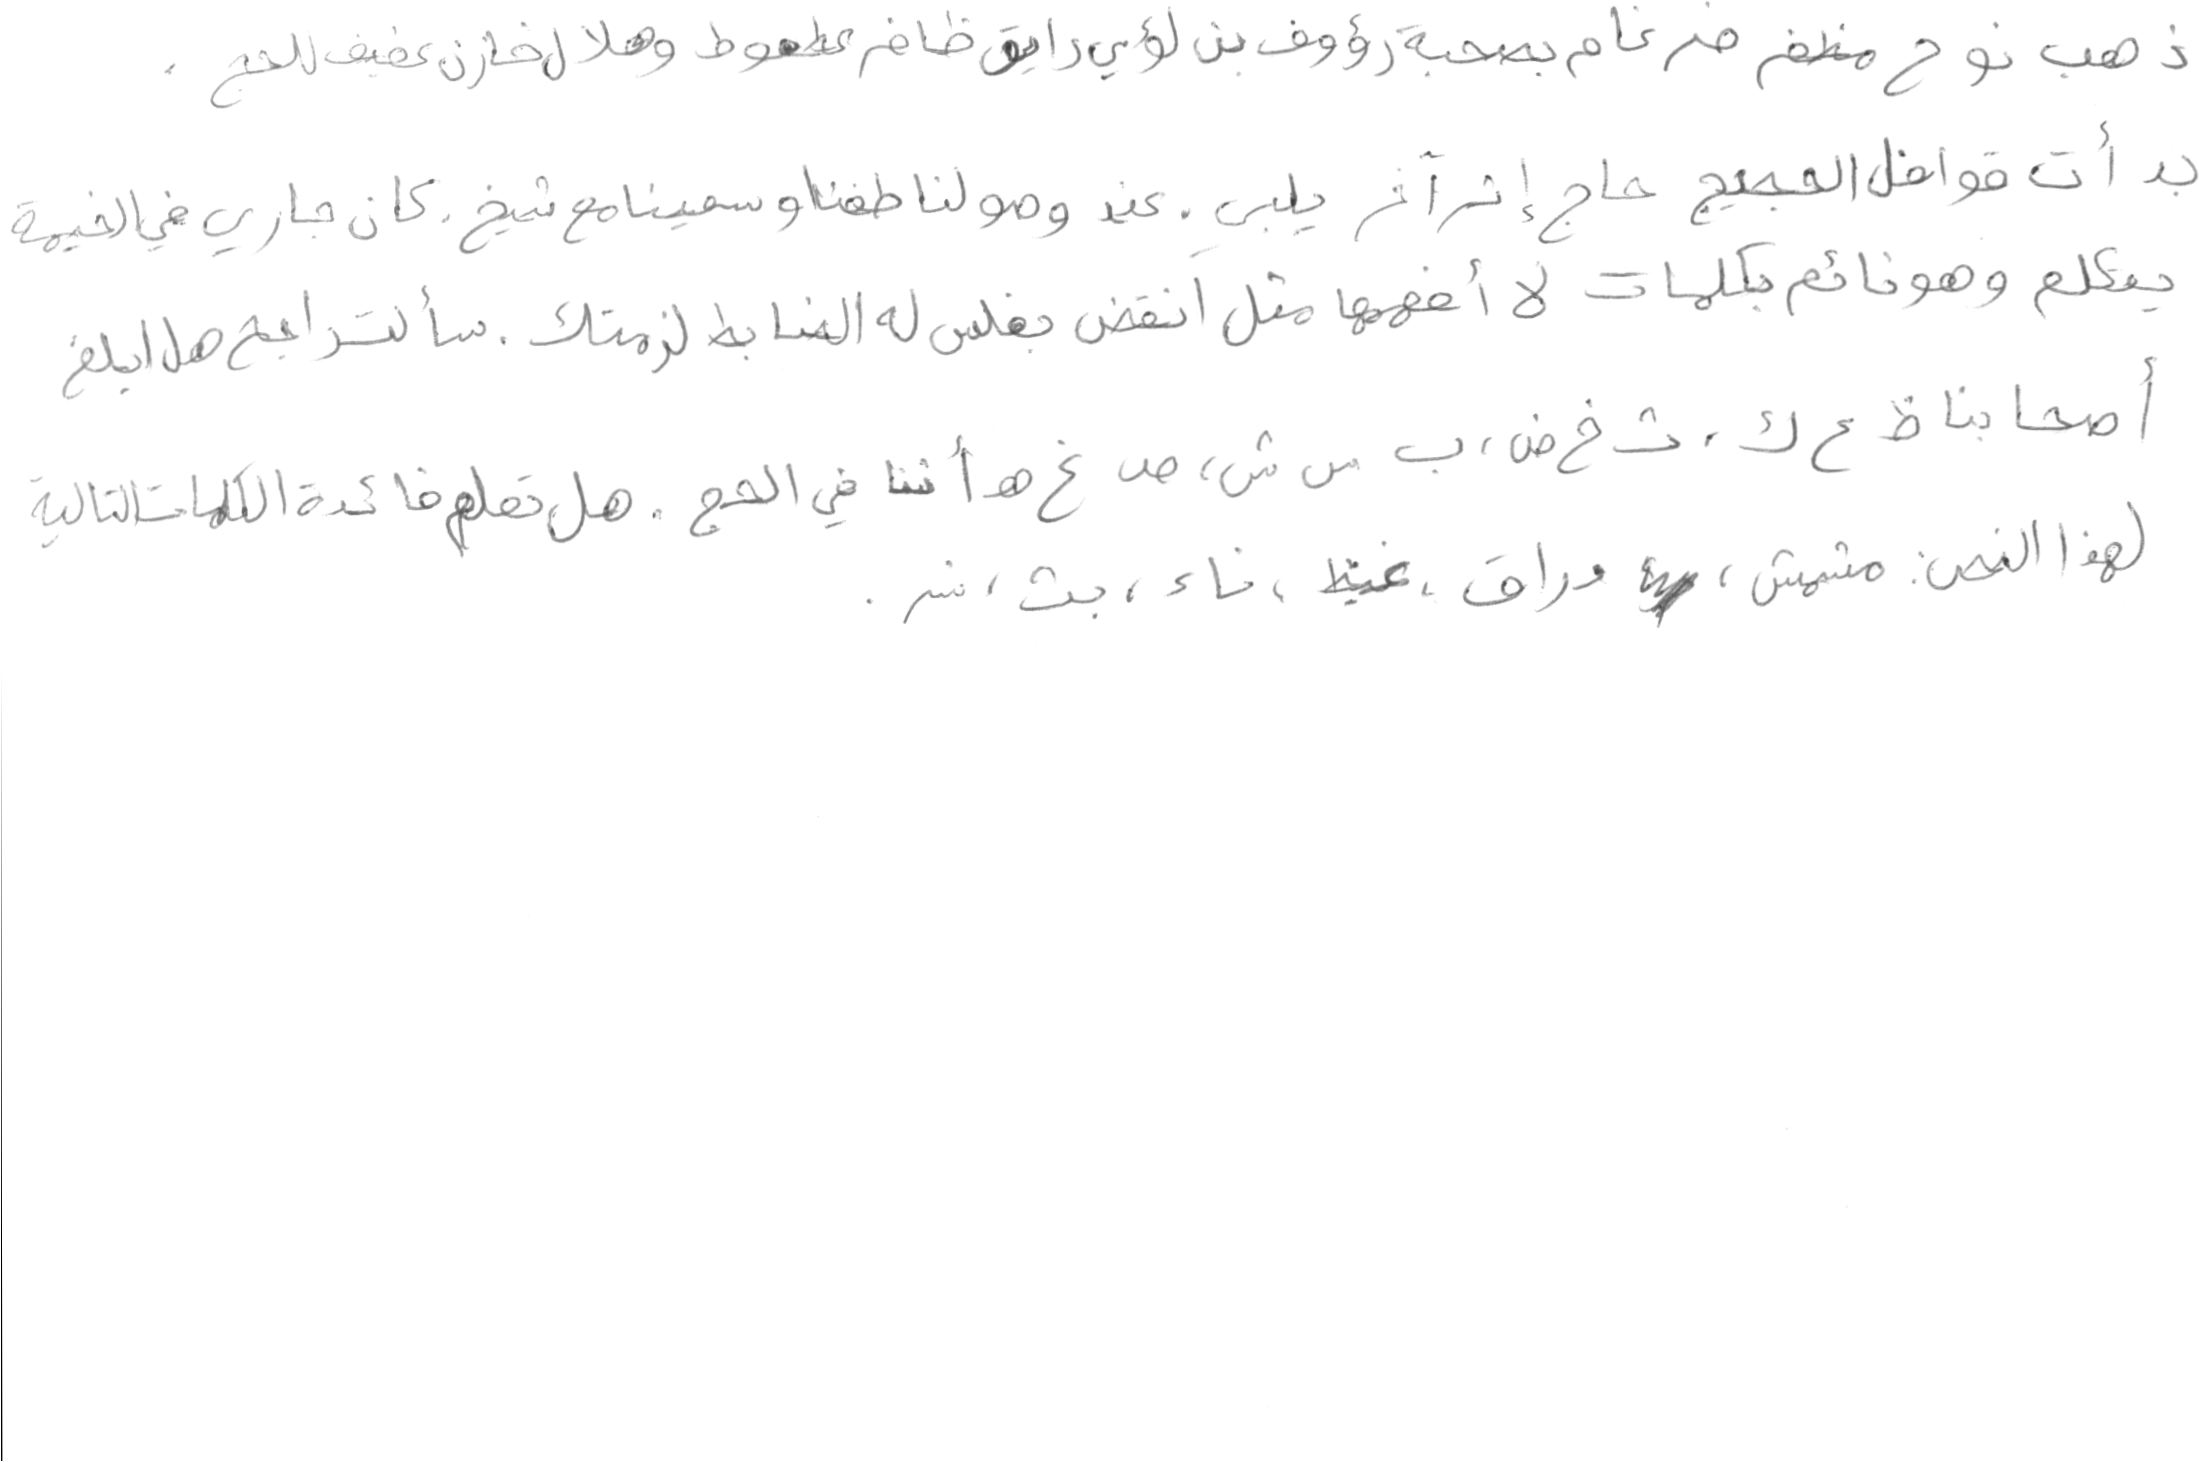 ذهب نوح مظفر ضرغام بصحبة رؤوف بن لؤي رايق ظافر عطعوط وهلال خازن عفيف للحج .
بدأت قوافل الحجيج حاج إثر آخر يلبي . عند وصولنا طفنا وسعينا مع شيخ . كان جاري في الخيمة
يتكلم وهو نائم بكلمات لا أفهمها مثل انقض بغلس له الضابط لزمتك . سألت راجح هل ابلغ
أصحابنا ظ ع ك ، ث خ ض ، ب س ش ، ص غ هـ أننا في الحج . هل تعلم فائدة الكلمات التالية
لهذا النص : مشمش ، وراق ، غيظ ، ناء ، بث ، نثر .